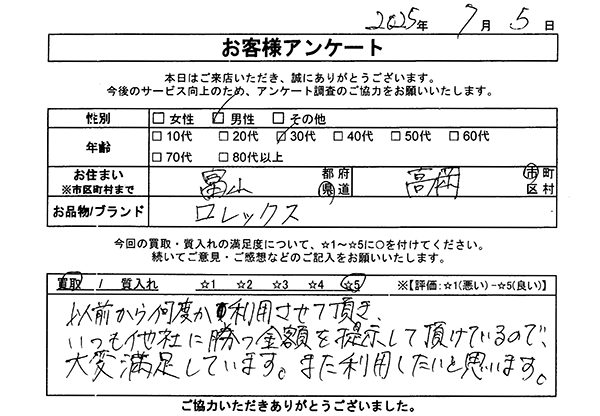 2025年 7月 5日
お客様アンケート
本日はご来店いただき、誠にありがとうございます。
今後のサービス向上のため、アンケート調査のご協力をお願いいたします。
性別 □ 女性 □ 男性 □ その他
年齢 □ 10代 □ 20代 □ 30代 □ 40代 □ 50代 □ 60代
□ 70代 □ 80代以上
お住まい
※市区町村まで
富山 都府県道 高岡 市町区村
お品物/ブランド ロレックス
今回の買取・質入れの満足度について、☆1～☆5に○を付けてください。
続いてご意見・ご感想などのご記入をお願いいたします。
買取 / 質入れ ☆1 ☆2 ☆3 ☆4 ☆5 ※【評価:☆1(悪い)-☆5(良い)】
以前から何度か利用させて頂き、
いつも他社に勝つ金額を提示して頂けているので、
大変満足しています。また利用したいと思います。
ご協力いただきありがとうございました。